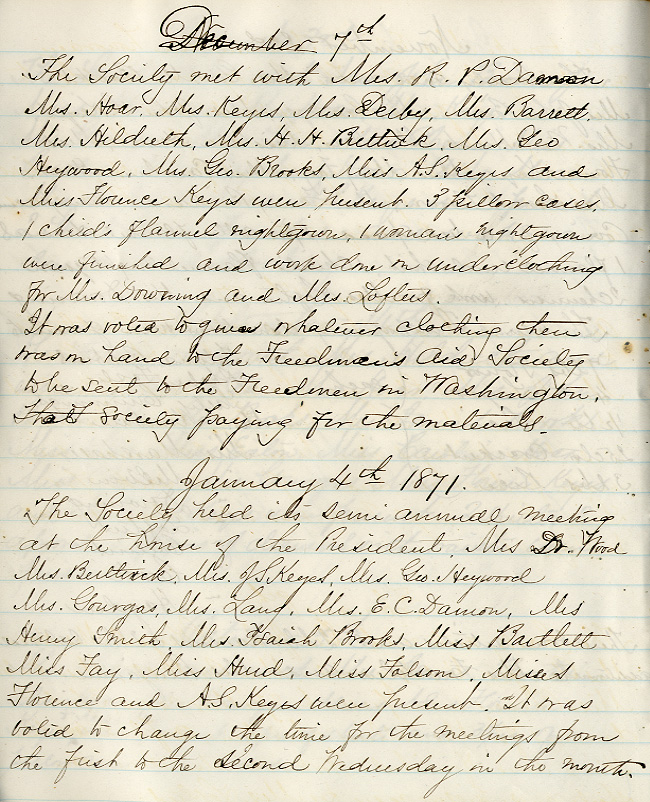 December 7th
The Society met with Mrs. R. P. Damon
Mrs. Hoar, Mrs. Keyes, Mrs. Derby, Mrs. Barrett,
Mrs. Hildreth, Mrs. H. H. Buttrick, Mrs. Geo
Heywood, Mrs. Geo. Brooks, Miss A.S. Keyes and
Miss Florence Keyes were present. 3 pillow cases,
1 child's flannel nightgown, 1 woman's nightgown
were finished and work done on underclothing
for Mrs. Downing and Mrs. Loftus.
It was voted to give whatever clothing there
was on hand to the Freedman's Aid Society
to be sent to the Freedmen in Washington,
that Society paying for the materials.
January 4th 1871.
The Society held its semi annual meeting
at the house of the President, Mrs Dr. Wood
Mrs. Buttrick, Mrs. J S Keyes, Mrs. Geo. Heywood
Mrs. Gourgas, Mrs. Lang, Mrs. E. C. Damon, Mrs
Henry Smith, Mrs Isaiah Brooks, Miss Bartlett
Miss Fay, Miss Hurd, Miss Folsom, Misses
Florence and A.S. Keyes were present. It was
voted to change the time for the meetings from
the first to the second Wednesday in the month.